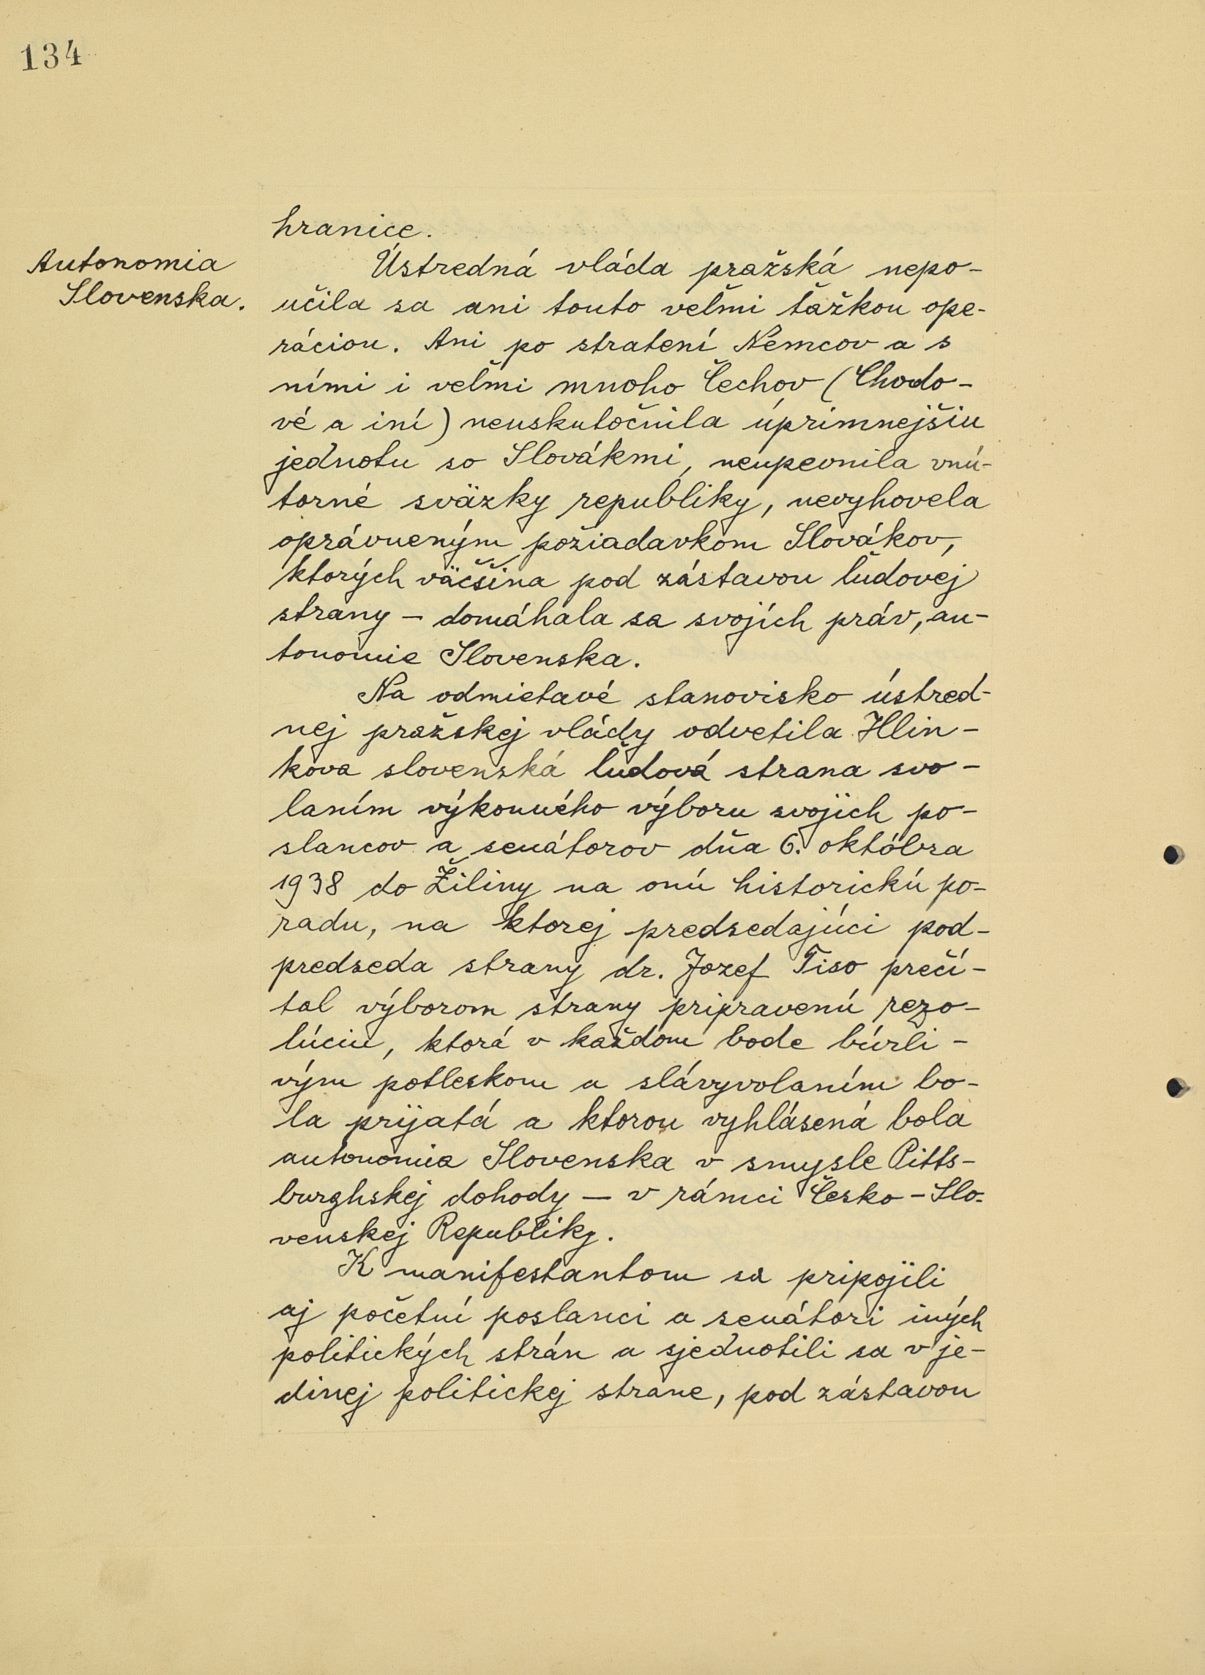 134
hranice.
Autonomia
Slovenska.
Ústredná vláda pražská nepo-
učila sa ani touto veľmi ťažkou ope-
ráciou. Ani po stratení Nemcov a s
ními i veľmi mnoho Čechov (Chodo-
vé a iní) neuskutočnila úprimnejšiu
jednotu so Slovákmi, neupevnila vnú-
torné sväzky republiky, nevyhovela
oprávneným požiadavkom Slovákov,
ktorých väčšina pod zástavou ľudovej
strany – domáhala sa svojích práv, au-
tonomie Slovenska.
Na odmietavé stanovisko ústred-
nej pražskej vlády odvetila Hlin-
kova slovenská ľudová strana svo-
laním výkonného výboru svojich po-
slancov a senátorov dňa 6. októbra
1938 do Žiliny na onú historickú po-
radu, na ktorej predsedajúci pod-
predseda strany dr. Jozef Tiso prečí-
tal výborom strany pripravenú rezo-
lúciu, ktorá v každom bode búrli-
vým potleskom a slávyvolaním bo-
la prijatá a ktorou vyhlásená bola
autonomia Slovenska v smysle Pitts-
burghskej dohody – v rámci Česko-Slo-
venskej Republiky.
K manifestantom sa pripojili
aj početní poslanci a senátori iných
politických strán a sjednotili sa v je-
dinej politickej strane, pod zástavou